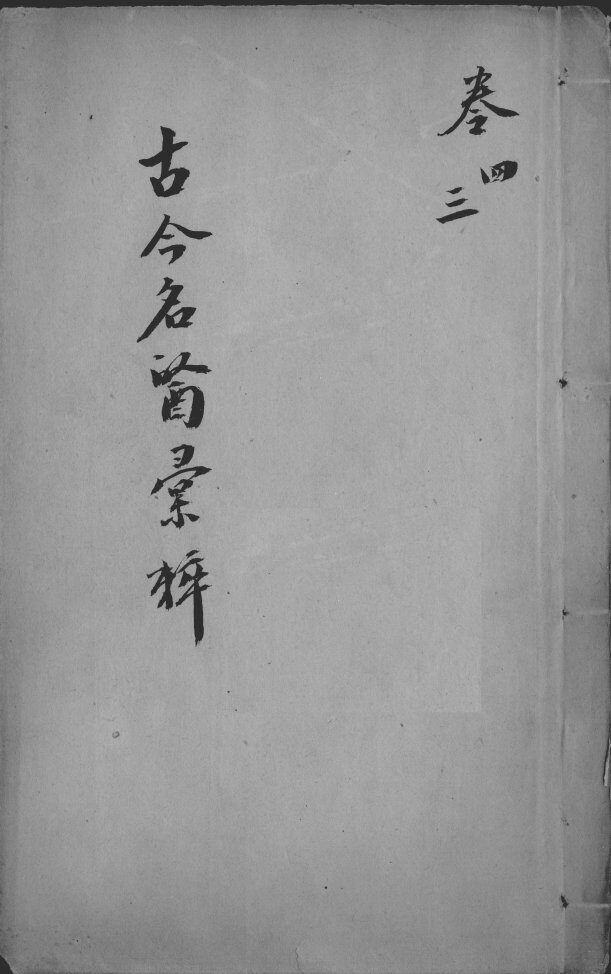 卷
三 四
古今名醫彙粹